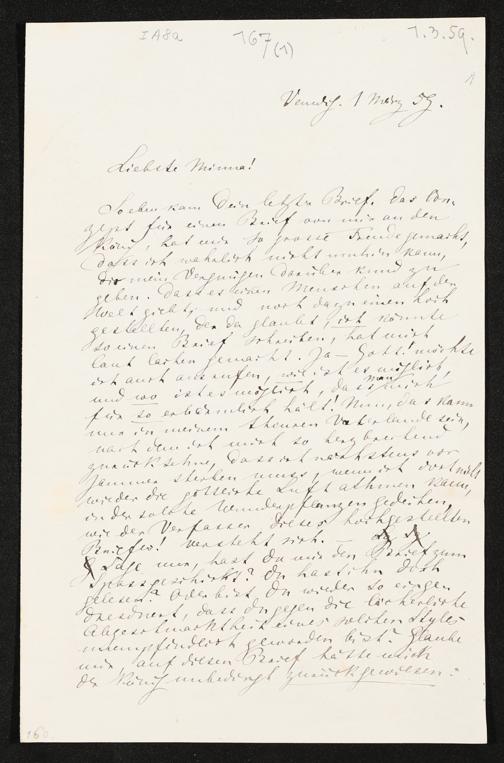 I A 8 a
167/(1)
1. 3. 59.
Venedig. 1 März 59.
Liebste Minna!
Soeben kam Dein letzter Brief. Das Con-
zept für einen Brief von mir an den
König, hat mir so grosse Freude gemacht,
dass ich wahrlich nicht umhin kann,
Dir mein Vergnügen darüber kund zu
geben. Dass es einen Menschen auf der
Welt giebt, und noch dazu einen hoch
gestellten, der da glaubt, ich könnte
so einen Brief schreiben, hat mich
laut lachen gemacht. Ja – Gott! möchte
ich auch ausrufen, wie ist es möglich,
und wo ist es möglich, dass man mich
für so erbärmlich hält! Nun, das kann
nur in meinem theuren Vaterlande sein,
nach dem ich mich so herzbrechend
zurücksehne, dass ich nächstens vor
Jammer sterben muss, wenn ich dort nicht
wieder die göttliche Luft athmen kann,
in der solche Wunderpflanzen gedeihen,
wie der Verfasser dieses hochgestellten
Briefes! versteht sich. –
Sage mir, hast Du mir den Brief zum
Spass geschickt? Du hast ihn doch
gelesen? Oder bist Du wieder so
dass Du gegen die lächerliche
Abgeschmacktheit eines solchen Styles
unempfindlich geworden bist? Glaube
mir, auf diesen Brief hätte mich
der König unbedingt zurückgewiesen:
160